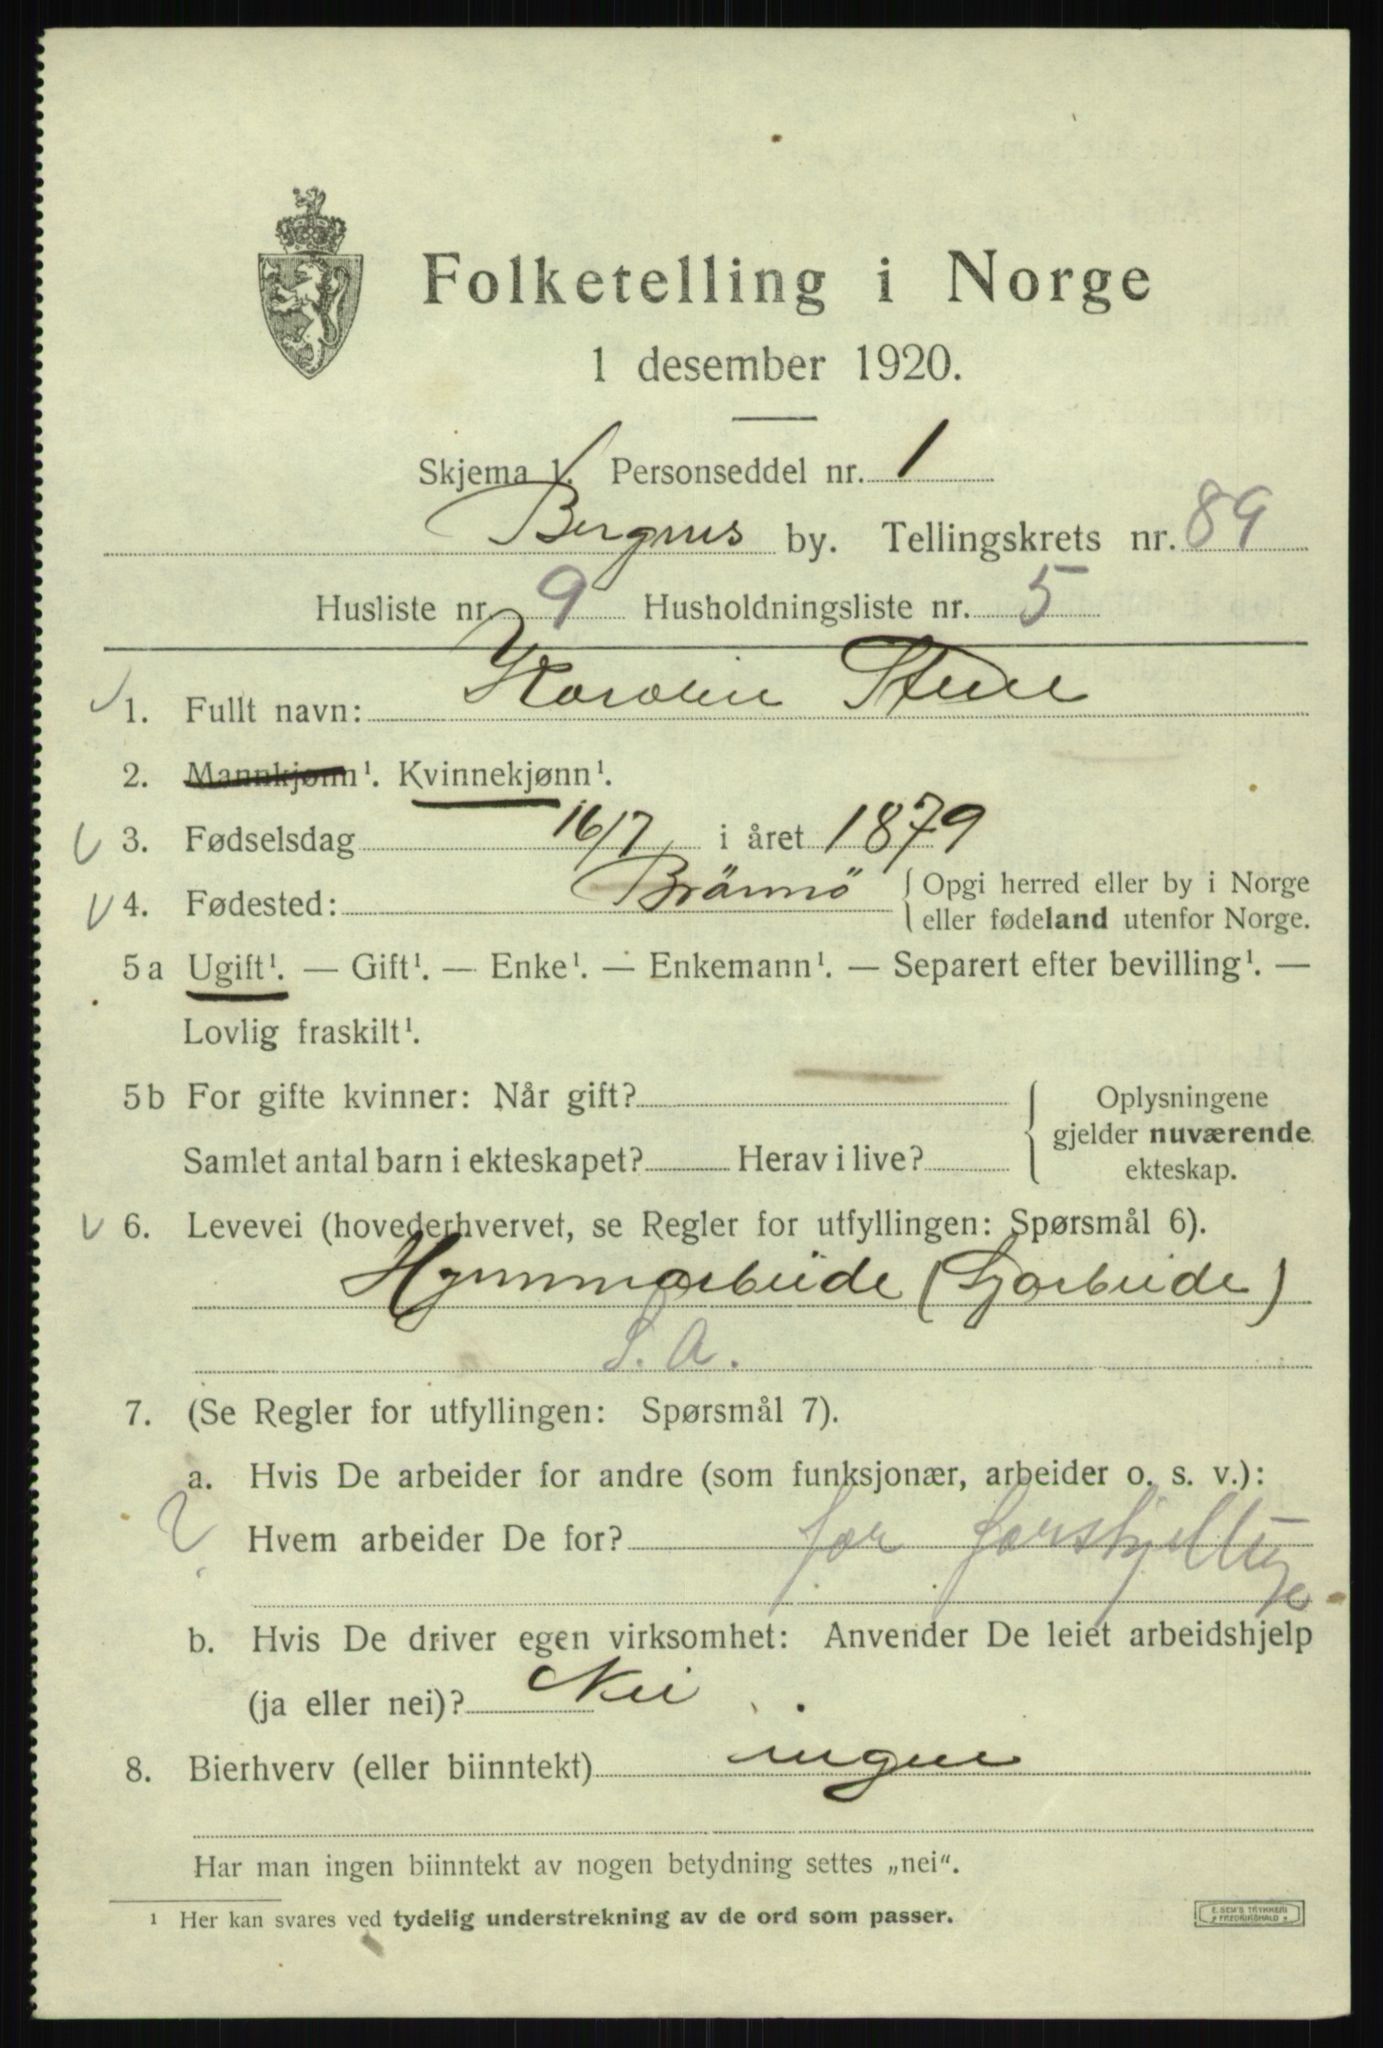 Folketelling i Norge
1 desember 1920.
Skjema 1. Personseddel nr. 1
Bergens by. Tellingskrets nr. 89
Husliste nr. 9 Husholdningsliste nr. 5
1. Fullt navn: Karolin
2. Mannkjønn¹. Kvinnekjønn¹.
3. Fødselsdag 16/7 i året 1879
4. Fødested: Brönnö { Opgi herred eller by i Norge
eller fødeland utenfor Norge.
5 a Ugift¹. — Gift¹. — Enke¹. — Enkemann¹. — Separert efter bevilling¹. —
Lovlig fraskilt¹.
5 b For gifte kvinner: Når gift?
Samlet antal barn i ekteskapet? Herav i live?
Oplysningene
gjelder nuværende
ekteskap.
6. Levevei (hovederhvervet, se Regler for utfyllingen: Spørsmål 6).
(Syarbeide)
S. A.
7. (Se Regler for utfyllingen: Spørsmål 7).
a. Hvis De arbeider for andre (som funksjonær, arbeider o. s. v.):
Hvem arbeider De for? for forskjellige
b. Hvis De driver egen virksomhet: Anvender De leiet arbeidshjelp
(ja eller nei)? Nei
8. Bierhverv (eller biinntekt) ingen
Har man ingen biinntekt av nogen betydning settes „nei“.
¹ Her kan svares ved tydelig understrekning av de ord som passer.
E. SEM'S TRYKKERI
FREDRIKSHALD